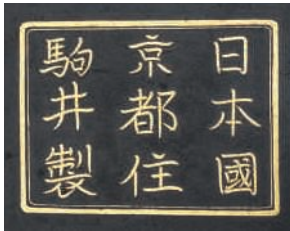 日本國
京都住
駒井製